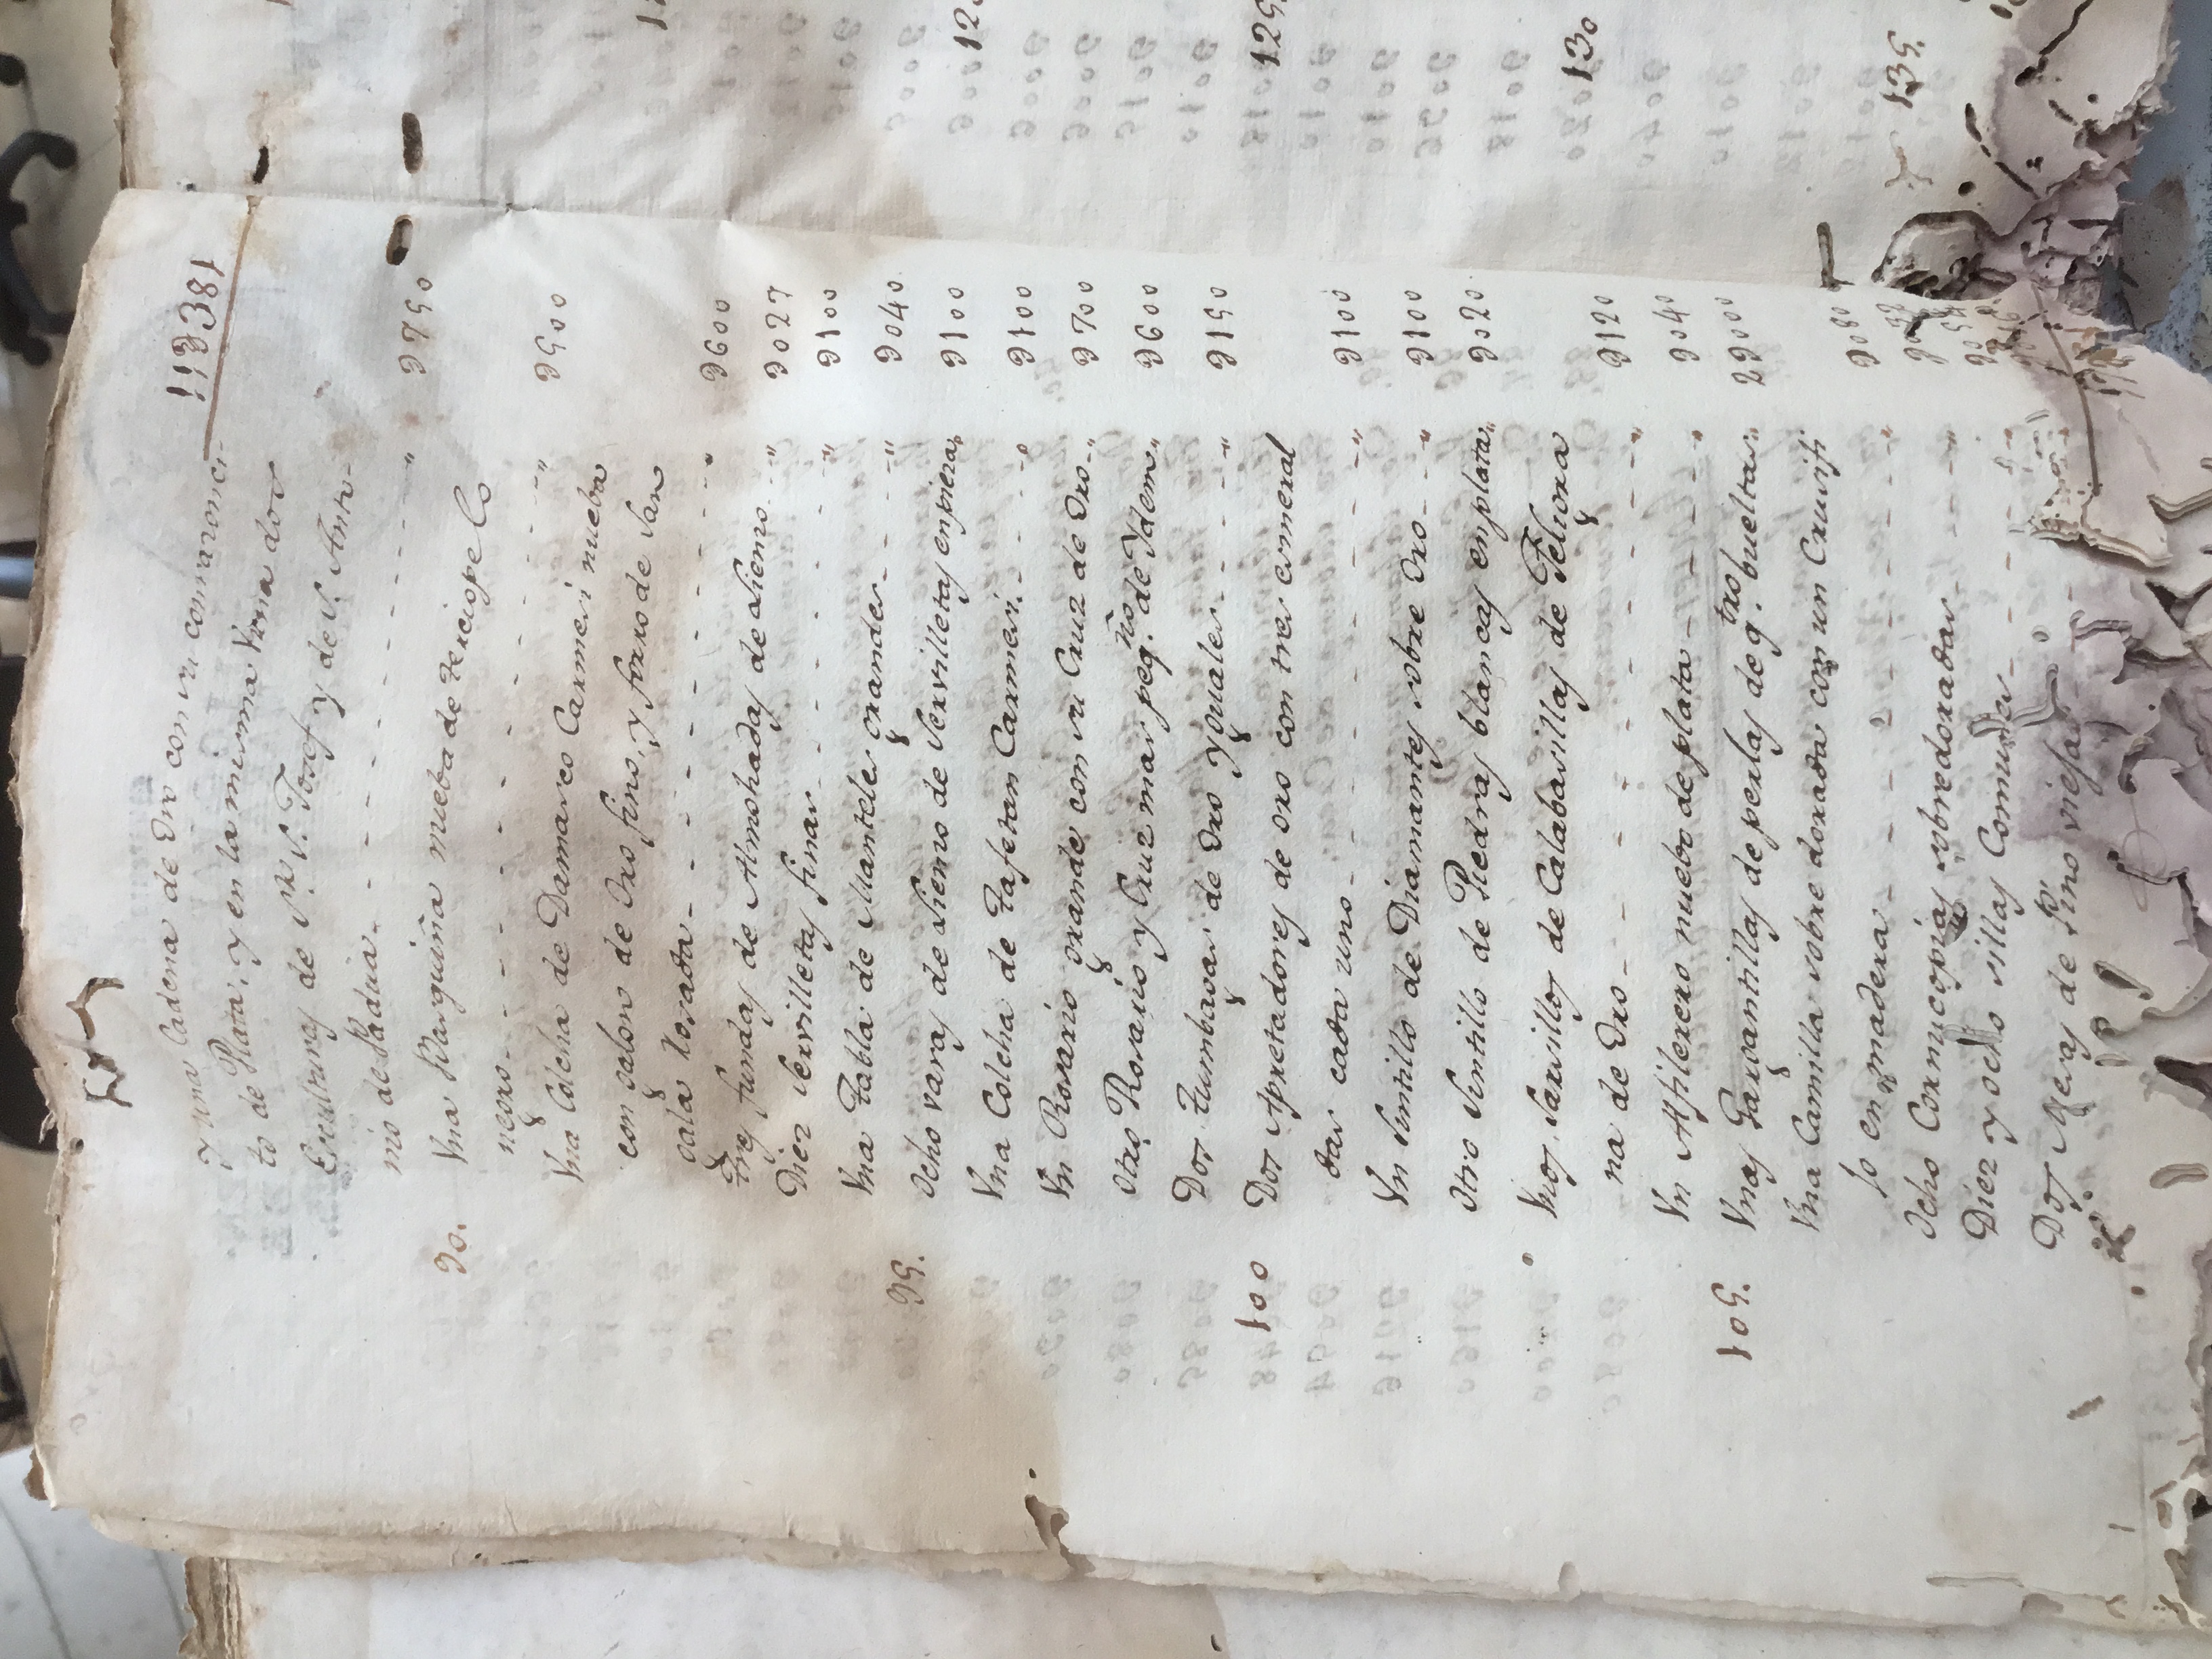 11238
y una Cadena de Oro con su comaronci
to de Plata; y en la misma Vrna dos
Esculturas de Sr. S. Josef y de S. Anto-
nio de Padua - - - - - - " 2750
90. Vna Basquiña nueba de terciopelo
negro - - - - - - " 2500
Vna Colcha de Damasco Carmesi nueba
con galon de Oro fino, y forro de San
gala rosada - - - - - - " 2600
Tres fundas de Almohadas de Lienzo - - " 2027
Diez Servilletas finas - - - - " 2100
95. Vna Tabla de Manteles grandes - - " 2040
Ocho varas de Lienzo de Servilletas en pieza " 2100
Vna Colcha de Tafetan Carmesi - - - " 2100
Vn Rosario grande con su Cruz de Oro - " 2700
Otro Rosario y Cruz mas peq.ño de Ydem " 2600
Dos Tumbagas de Oro yguales - - - " 2150
100 Dos Apretadores de oro con tres esmeral
das cada uno - - - - - " 2100
Vn Sintillo de Diamantes sobre Oro - - " 2100
Otro Sintillo de Piedras blancas en plata " 2020
Vnos Sarsillos de Calabasillas de Feligra
na de Oro - - - - - - " 2120
Vn Alfilerero nuebo de plata - - - " 2040
105. Vnas Gargantillas de perlas de q.tro bueltas " 22000
Vna Camilla sobre dorada con un Crusifi
jo en madera - - - - - " 2080
Ocho Cornucopias sobredoradas - - -
Diez y ocho sillas Comunes - - -
Dos Mesas de Pino viejas
12
125
130
135.